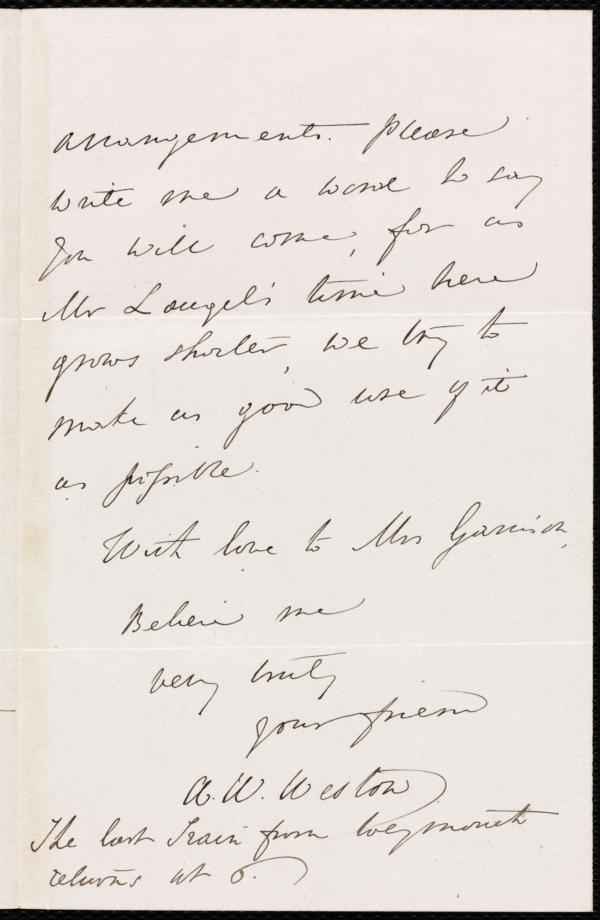 arrangements. Please
write me a word to say
you will come, for as
Mr Laugel's time here
grows shorter, we try to
make as good use of it
as possible.
With love to Mrs Garrison,
Believe me
very truly
your friend
A. W. Weston
The last Train from Weymouth
returns at 6.